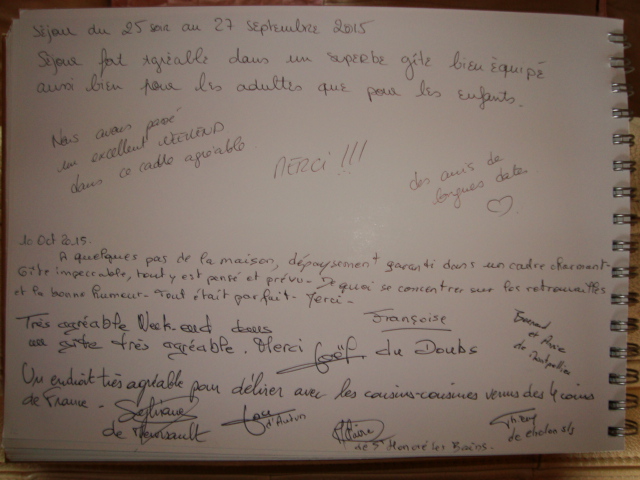 Séjour du 25 soir au 27 septembre 2015
Séjour fort agréable dans un superbe gîte bien équipé
aussi bien pour les adultes que pour les enfants.
Nous avons passé
un excellent WEEKEND
dans ce cadre agréable
MERCI !!!
des amis de
longues dates
10 Oct 2015.
A quelques pas de la maison, dépaysement garanti dans un cadre charmant-
Gîte impeccable, tout y est pensé et prévu - De quoi se concentrer sur les retrouvailles
et la bonne humeur - Tout était parfait - Merci -
Françoise
Très agréable Week-end dans
un gîte très agréable. Merci Joël du Doubs
et
de Montpellier
Un endroit très agréable pour délirer avec les cousins-cousines venus des 4 coins
de France -
de Meursault
d'Autun
de St Honoré les Bains.
Thierry
de